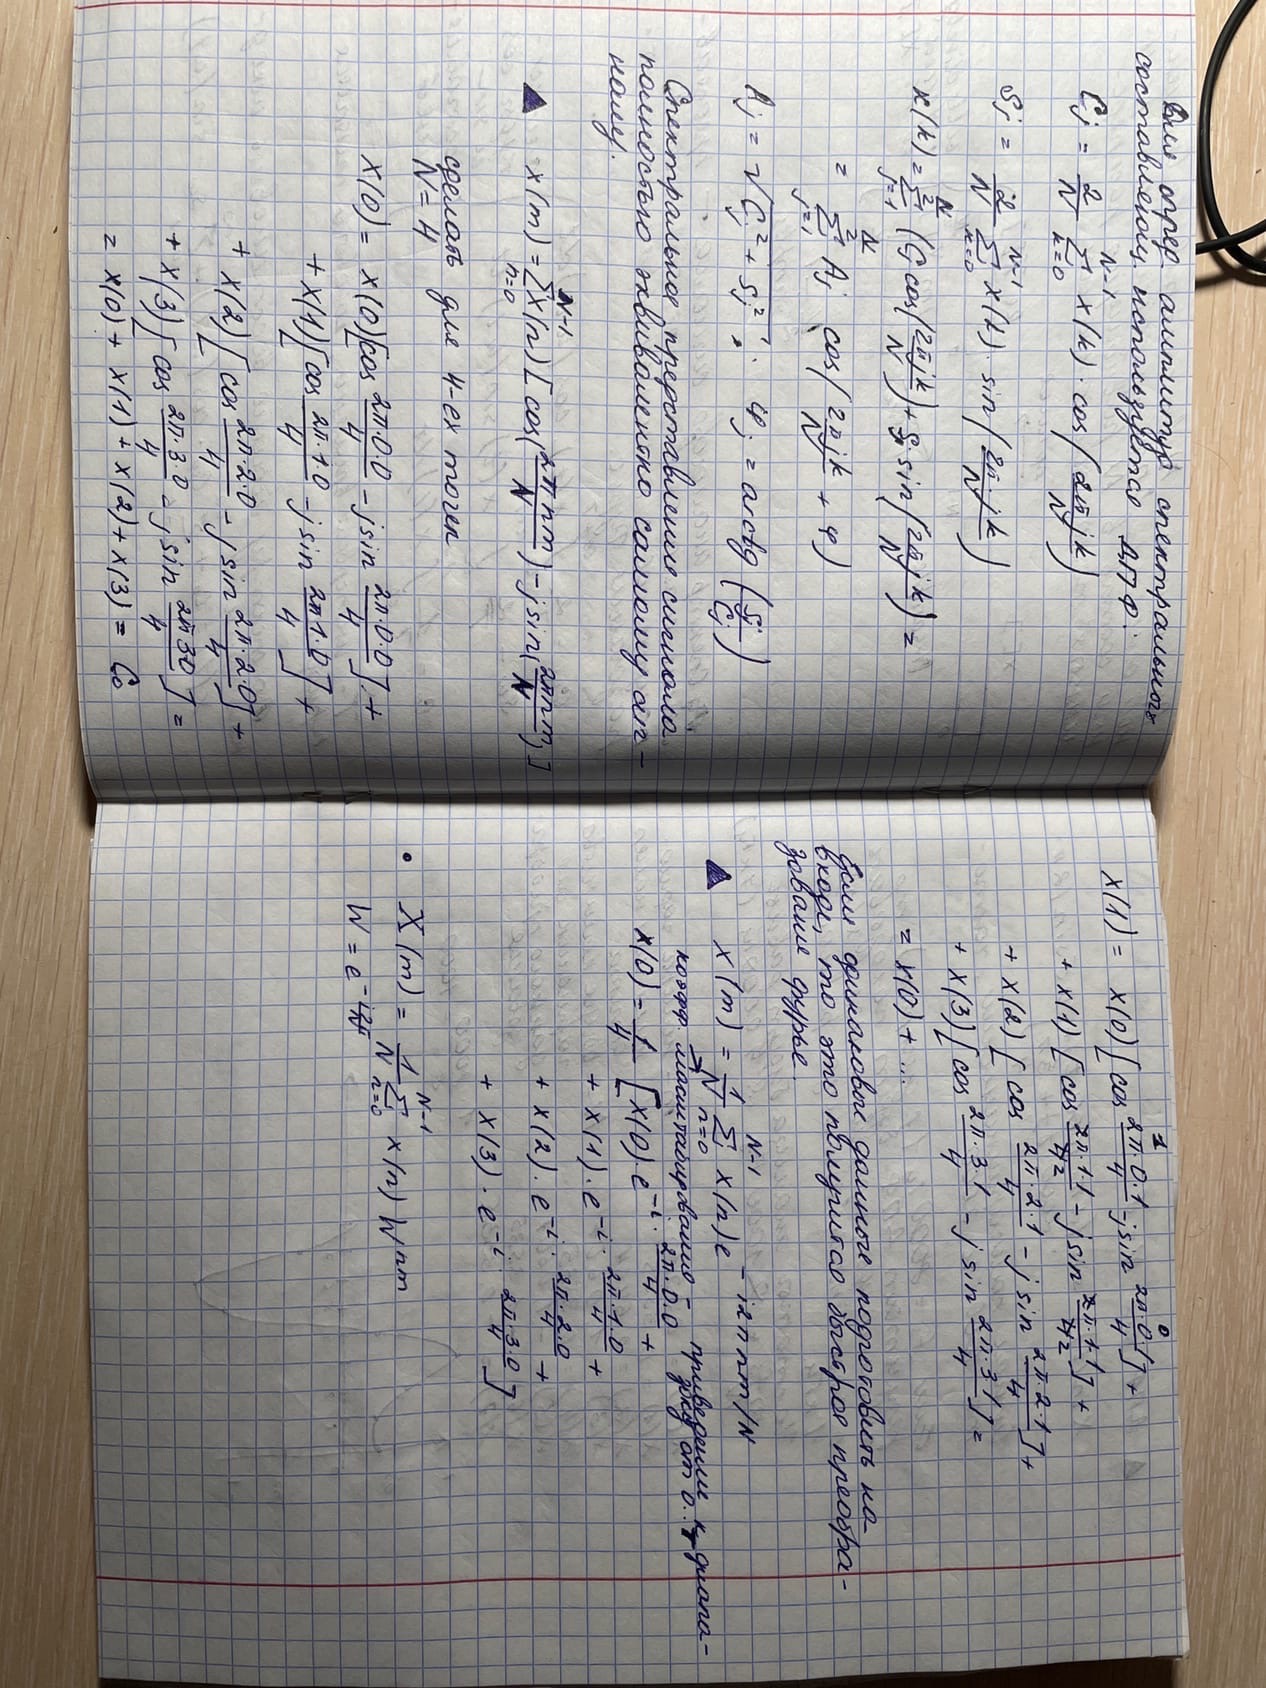 Для опред. амплитуд спектральных
составляющ. используется ДПФ:
Cj = 2/N Σ(k=0, N-1) x(k) · cos(2πjk/N)
Sj = 2/N Σ(k=0, N-1) x(k) · sin(2π·jk/N)
x(k) = Σ(j=1, N/2) (Cj cos(2πjk/N) + Sj sin(2πjk/N) =
= Σ(j=1, N/2) Aj cos(2πjk/N + φ)
Aj = √(Cj² + Sj²) ; φj = arctg (Sj/Cj)
Спектральное представление сигнала
полностью эквивалентно самому сиг-
налу.
▲ x(m) = Σ(n=0, N-1) x(n) [cos(2πnm/N) - j sin(2πnm/N)]
сделать для 4-ех точек
N = 4
X(0) = x(0)[cos 2π·0·0/4 - j sin 2π·0·0/4] +
+ x(1)[cos 2π·1·0/4 - j sin 2π1·0/4] +
+ x(2)[cos 2π·2·0/4 - j sin 2π·2·0/4] +
+ x(3)[cos 2π·3·0/4 - j sin 2π30/4] =
= x(0) + x(1) + x(2) + x(3) = C₀
1 0
x(1) = x(0)[cos 2π·0·1/4 - j sin 2π·0·1/4] +
+ x(1)[cos 2π·1·1/42 - j sin 2π·1·1/42] +
+ x(2)[cos 2π·2·1/4 - j sin 2π·2·1/4] +
+ x(3)[cos 2π·3·1/4 - j sin 2π·31/4] =
= x(0) + ...
Если одинаковые данные подготовить на
входе, то это получится быстрое преобра-
зование фурье.
▲ x(m) = 1/N Σ(n=0, N-1) x(n) e^(-i2πnm/N)
коэфф. масштабирования - приведение к диапа-
зону от 0..
x(0) = 1/4 [x(0)·e^(-i·2π·0·0/4) +
+ x(1)·e^(-i·2π·1·0/4) +
+ x(2)·e^(-i·2π·2·0/4) +
+ x(3)·e^(-i·2π·3·0/4)]
• X(m) = 1/N Σ(n=0, N-1) x(n) W^nm
W = e^(-i2π/N)